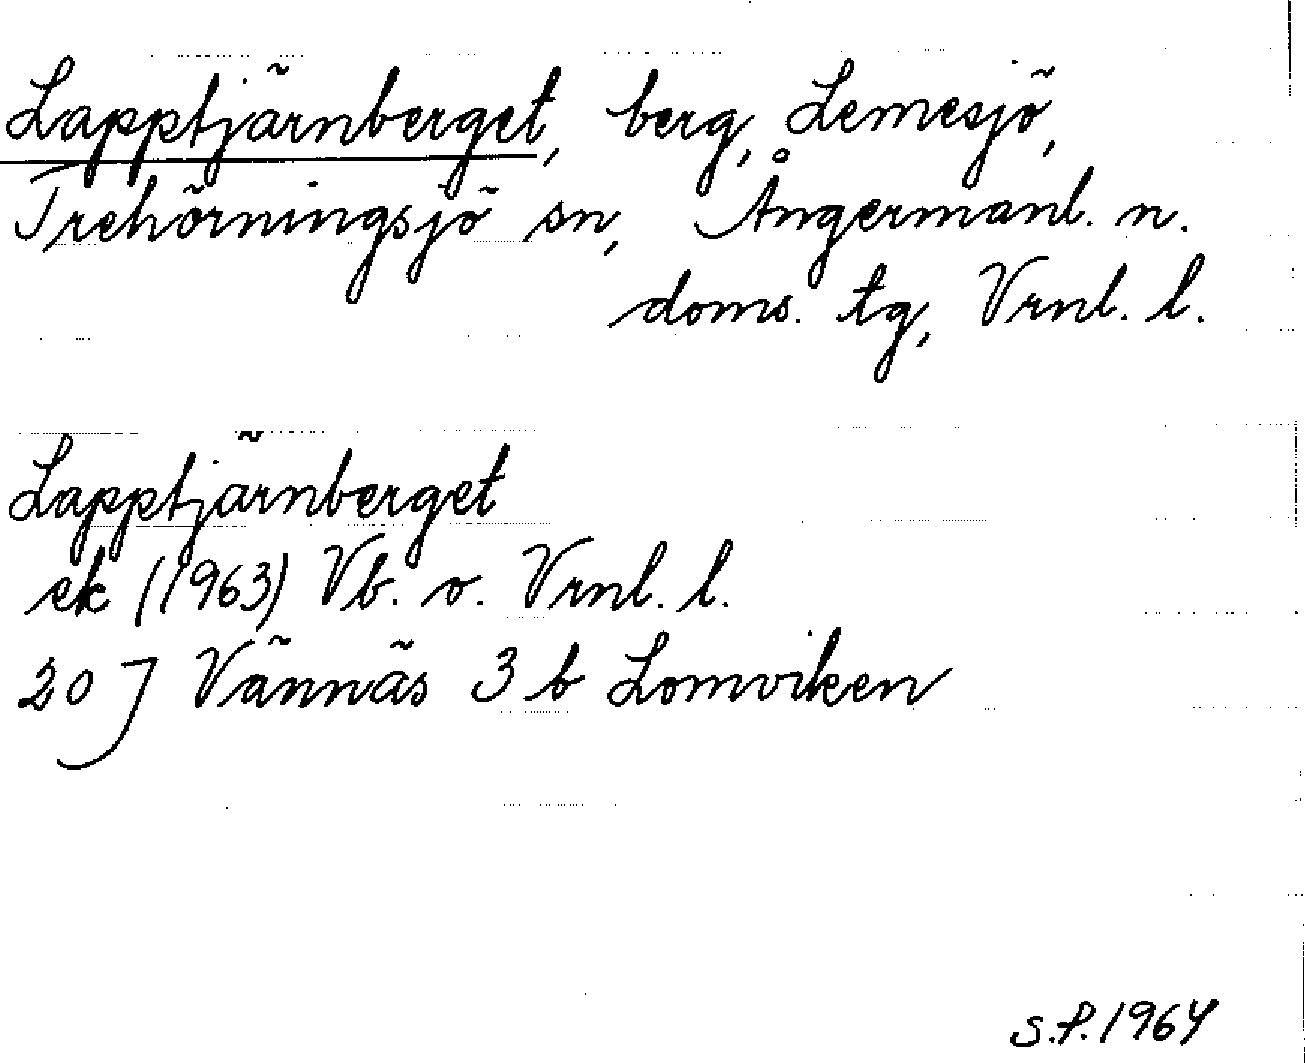 Lapptjärnberget, berg, Lemesjö,
Trehörningsjö sn, Ångermanl. n.
doms. tg, Vrnl. l.
Lapptjärnberget
ek (1963) Vb. o. Vrnl. l.
20 J Vännäs 3 b Lomviken
S.P. 1964